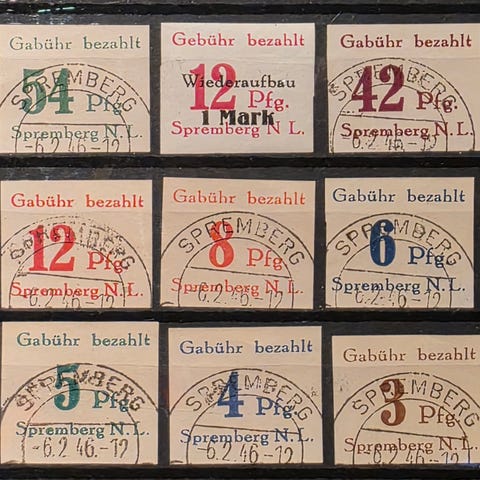 Gabühr bezahlt
54 Pfg
Spremberg N.L.
SPREMBERG
-6.2.46.-12
Gebühr bezahlt
Wiederaufbau
12 Pfg.
1 Mark
Spremberg N.L.
Gabühr bezahlt
42 Pfg.
Spremberg N.L.
SPREMBERG
-6.2.46.-12
Gabühr bezahlt
12 Pfg.
Spremberg N.L.
SPREMBERG
-6.2.46.-12
Gabühr bezahlt
8 Pfg.
Spremberg N.L.
SPREMBERG
-6.2.46.-12
Gabühr bezahlt
6 Pfg.
Spremberg N.L.
SPREMBERG
-6.2.46.-12
Gabühr bezahlt
5 Pfg.
Spremberg N.L.
SPREMBERG
-6.2.46.-12
Gabühr bezahlt
4 Pfg.
Spremberg N.L.
SPREMBERG
-6.2.46.-12
Gabühr bezahlt
3 Pfg.
Spremberg N.L.
SPREMBERG
-6.2.46.-12